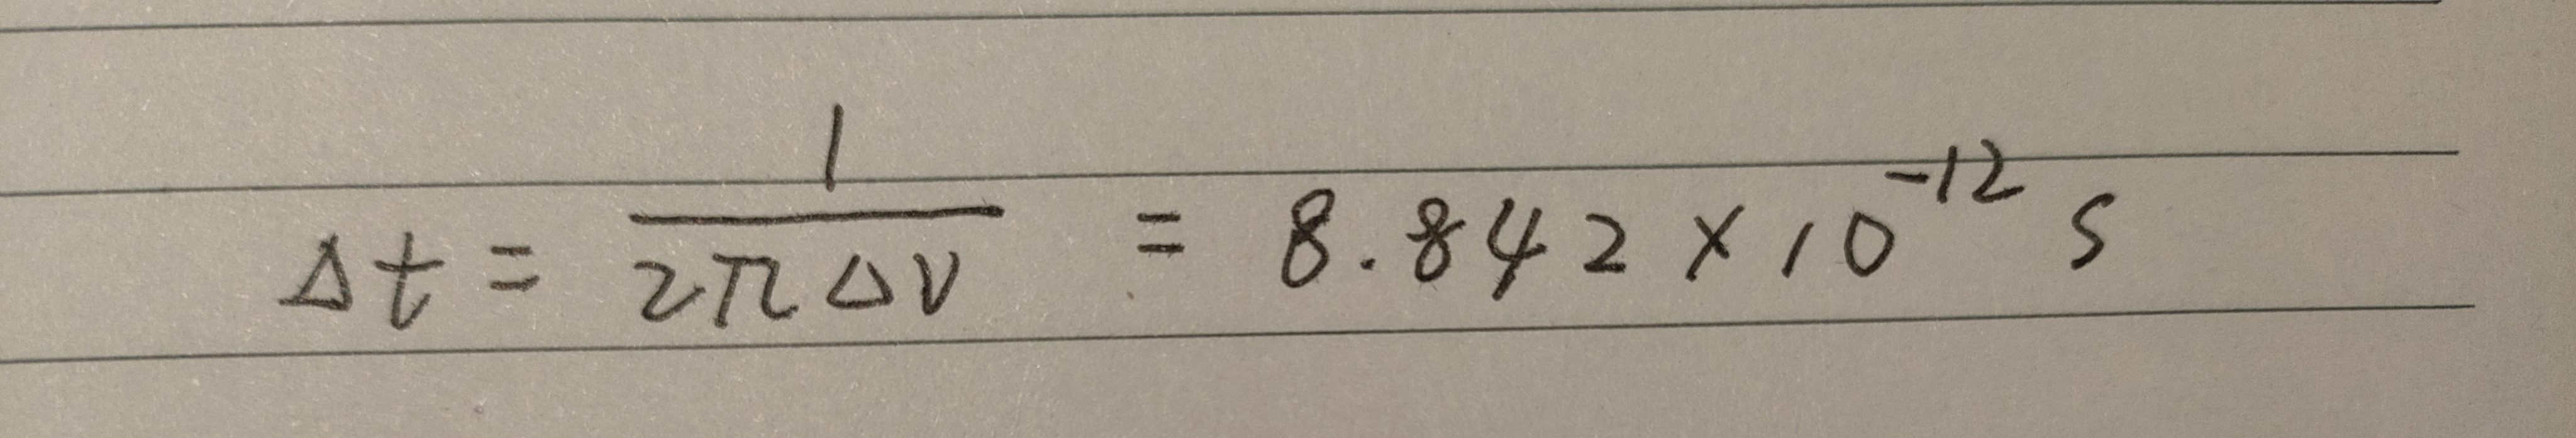 Δt = 1/(2πΔν) = 8.842 × 10⁻¹² s